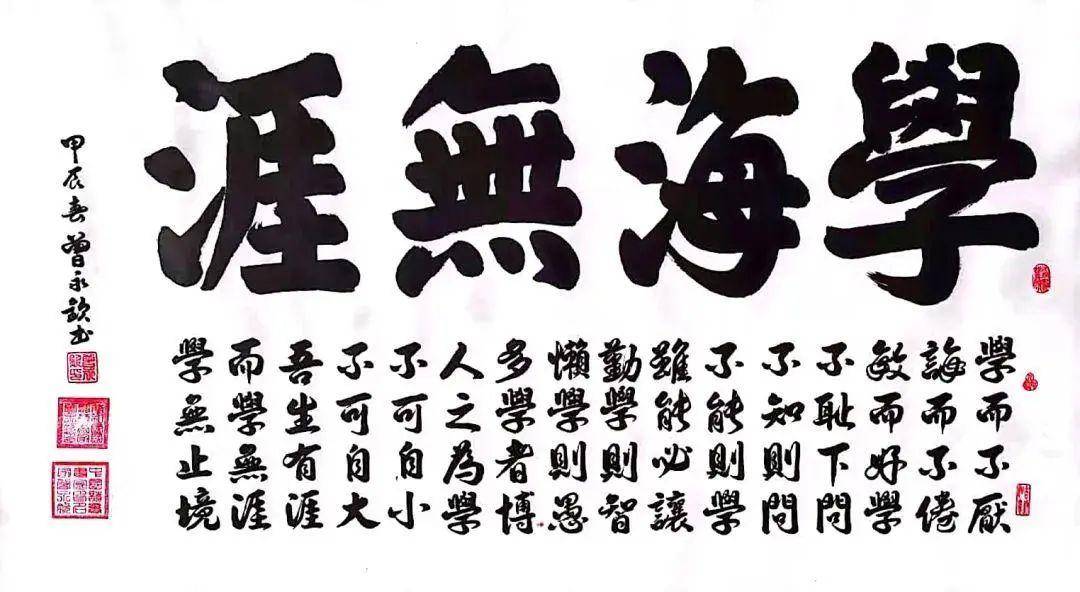 學海無涯
學而不厭
誨而不倦
敏而好學
不耻下問
不知則問
不能則學
雖能必讓
勤學則智
懶學則愚
多學者博
人之為學
不可自小
不可自大
吾生有涯
而學無涯
學無止境
甲辰春曾永欽书